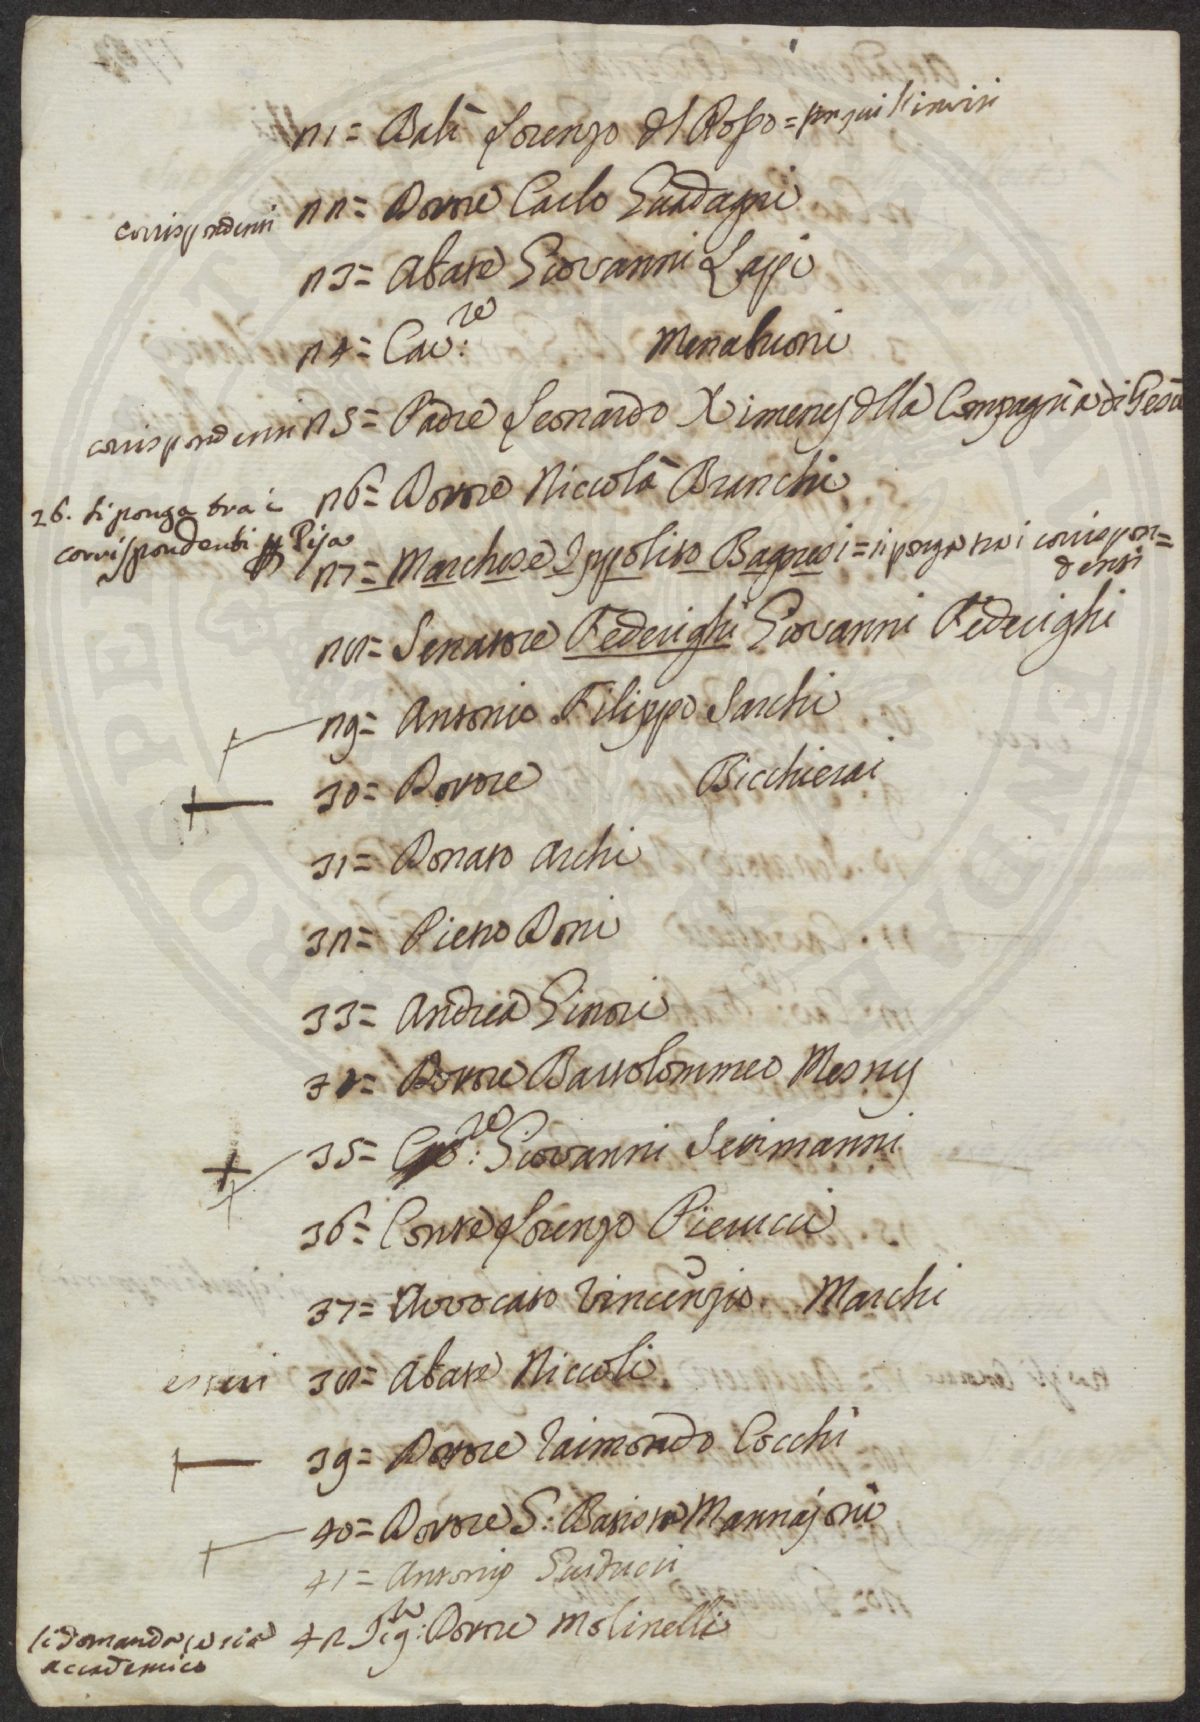 21= Balì Lorenzo del Rosso = per qui l'invii
corrispondenti 22= Dottore Carlo Guadagni
23= Abate Giovanni Lapi
24= Cav:re Menabuoni
corrispondenti 25= Padre Leonardo Ximenes della Compagnia di Gesù
26= Dottore Niccolà Branchi
26. si ponga tra i
corrispondenti Pisa
27= Marchese Ippolito Bagnesi = si ponga tra i corrispon=
denti
28= Senatore Federighi Giovanni Federighi
29= Antonio Filippo Sarchi
30= Dottore Bicchierai
31= Donato Archi
32= Pietro Doni
33= Andrea Ginori
34= Dottore Bartolommeo Mesny
35= Cav:re Giovanni Setimanni
36= Conte Lorenzo Pierucci
37= Avvocato Vincenzio Marchi
esteri 38= Abate Niccoli
39= Dottore Raimondo Cocchi
40= Dottore G: Batista Mannajoni
41= Antonio Guiducci
42 Sig:re Dottore Molinelli
si domanda se sia
accademico
PROSPERITATI PUBLICAE AUGENDAE